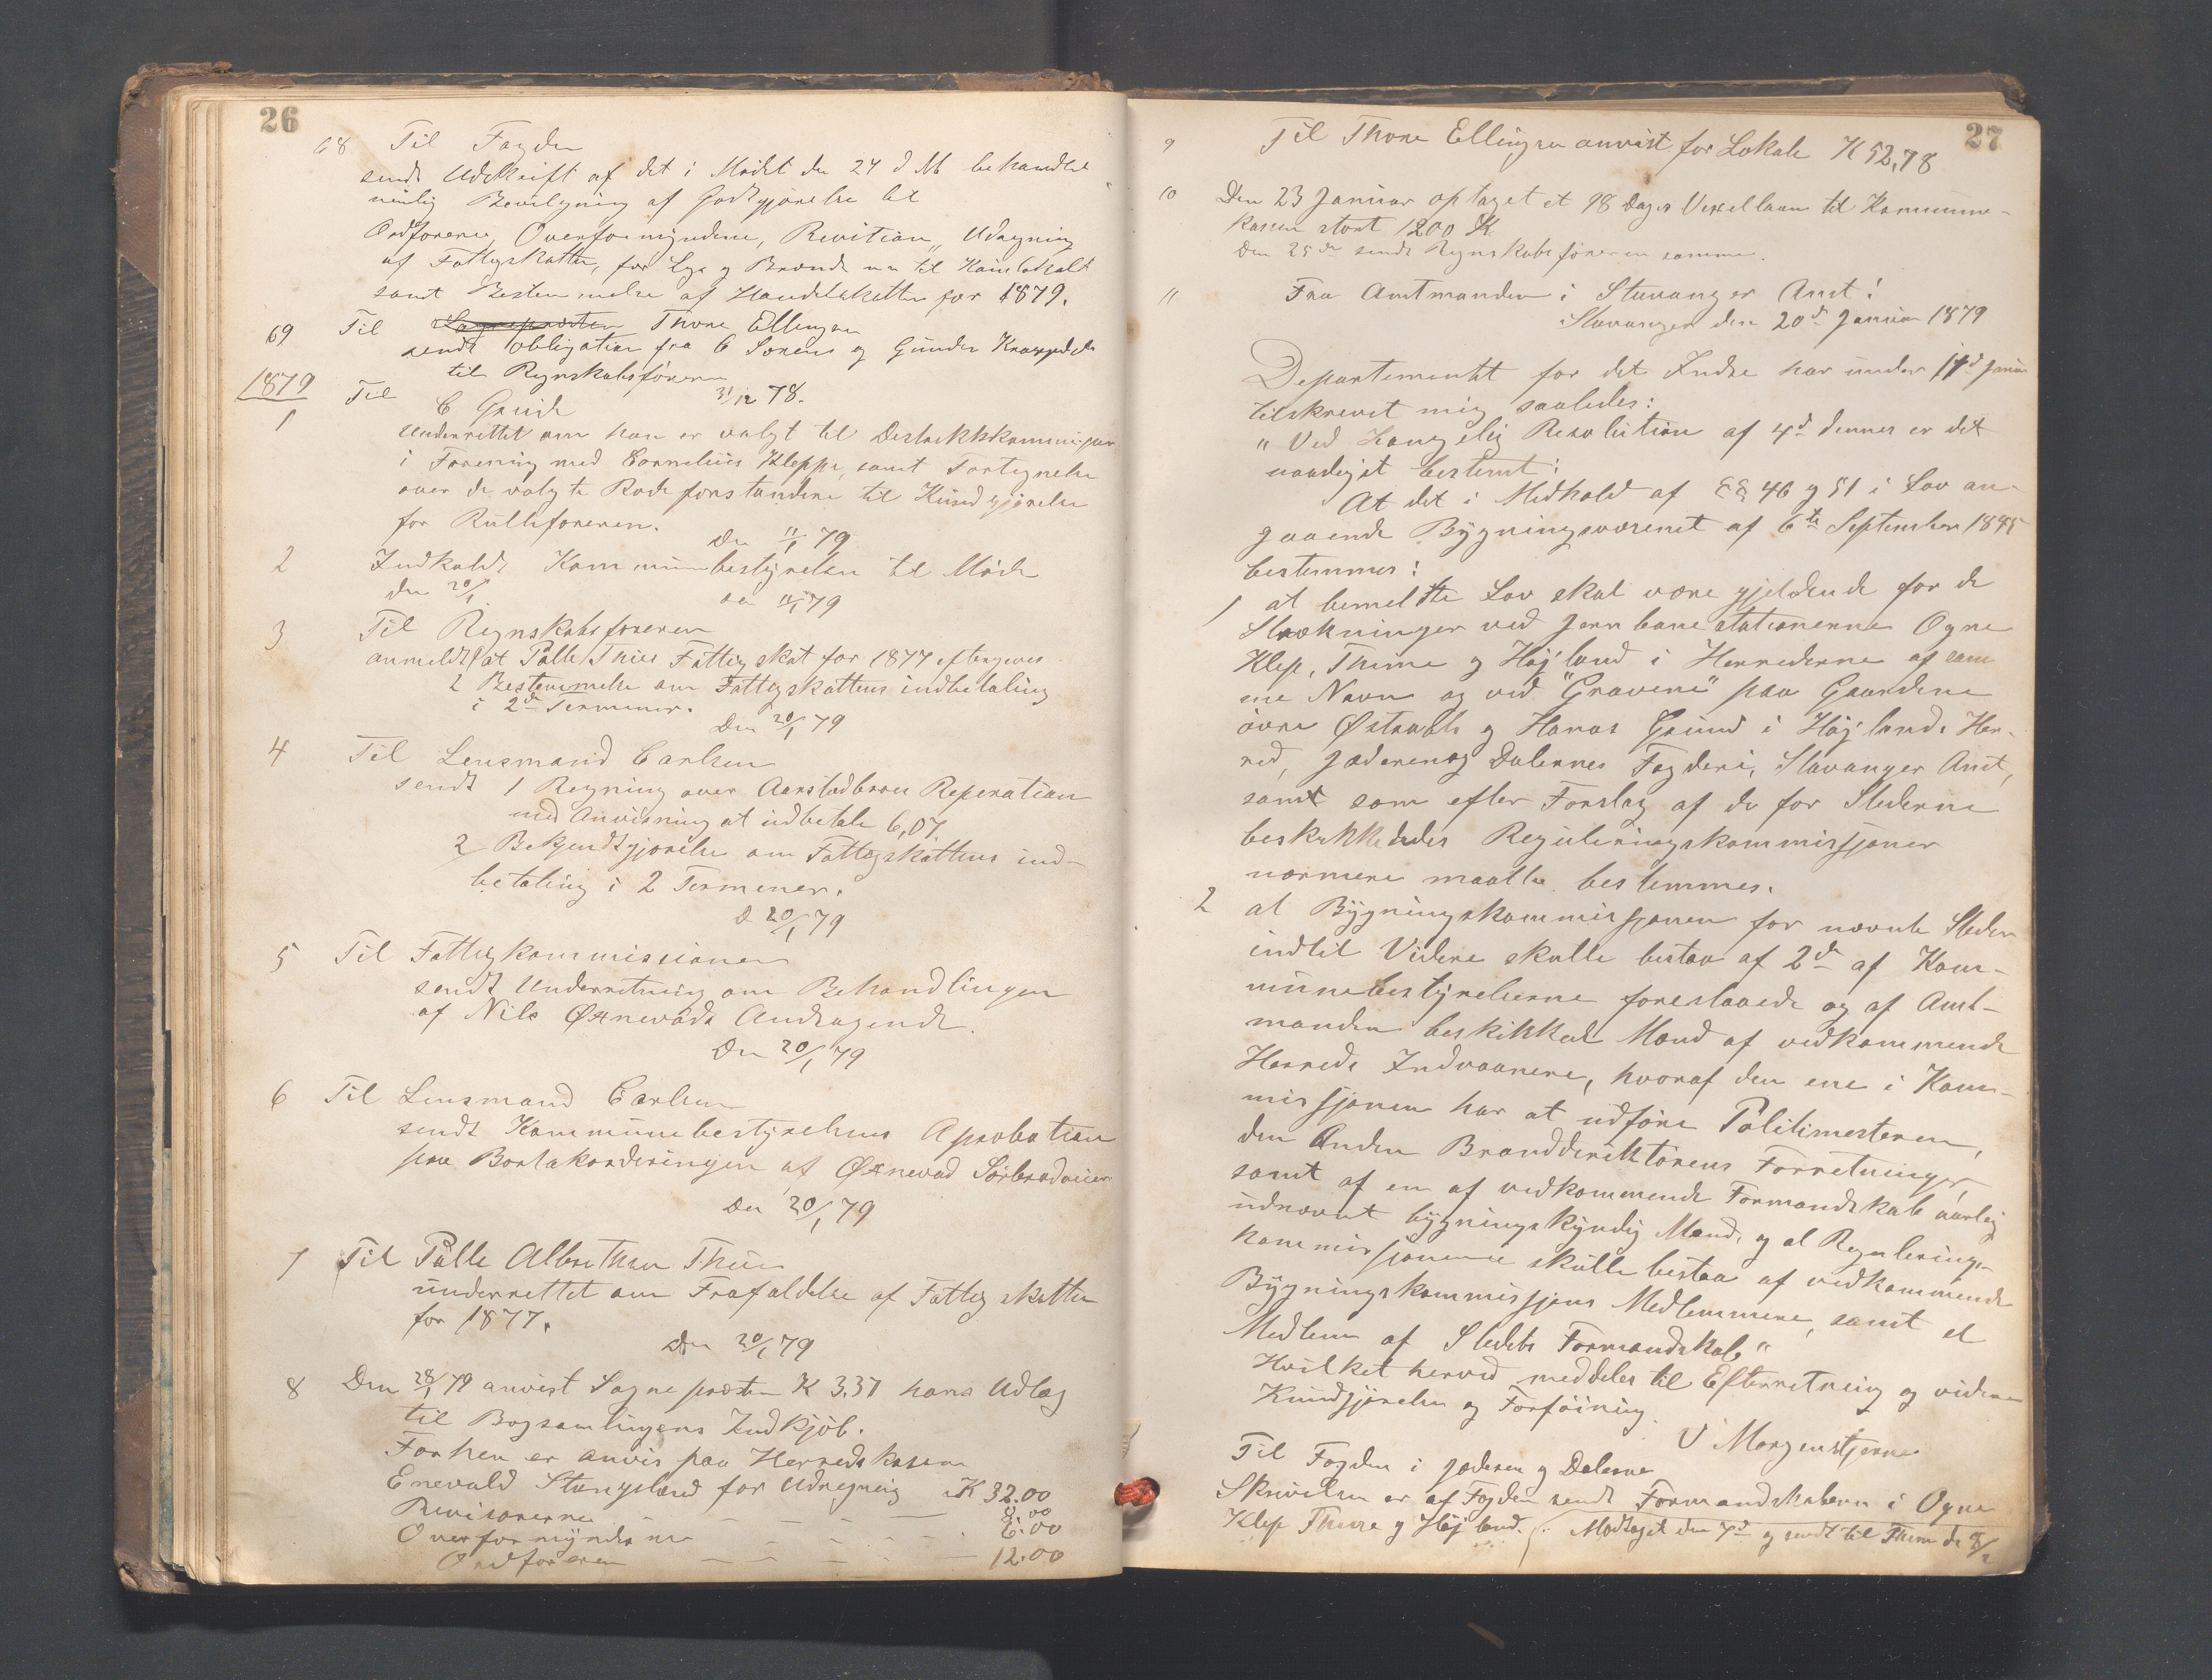 26
68 Til Fogden
sendt Udskrift af det i Mødet den 24 d M behandlet
nemlig Bevilgning af Godtgjørelse til
Ordføreren, Overformynderne, Revition, Udregning
af Fattigskatten, for Lys og Brænde m m til Kommunelokalet
samt Bestemmelse af Handelskatten for 1879.
69 Til Thore Ellingsen
sendt Obligation fra C Sørens og Gunder
til Regnskabsføreren
31/12 78.
1879
1 Til C Grude
Underrettet om han er valgt til Deslækkskommissær
i Forening med Cornelius Kleppe, samt Fortegnelse
over de valgte Rodeforstandere til Kundgjørelse
for Rulleføreren.
Den 11/1 79
2 Indkaldt Kommunebestyrelsen til Møde
den 20/1
Den 11/1 79
3 Til Regnskabsføreren
anmeldt 1 at Palle Thies Fattigskat for 1877 eftergives
2 Bestemmelse om Fattigskattens indbetaling
i 2de Terminer.
Den 20/1 79
4 Til Lensmand Carlsen
sendt 1 Regning over Aarstadbroens Reperation
med Anvisning at udbetale 6,07.
2 Bekjendtgjørelse om Fattigskattens ind-
betaling i 2 Terminer.
D 20/1 79
5 Til Fattigkommissionen
sendt Underretning om Behandlingen
af Nils Øxnevads Andragende.
Den 20/1 79
6 Til Lensmand Carlsen
sendt Kommunebestyrelsens Aprobation
paa Bortakorderingen af Øxnevad
Den 20/1 79
7 Til Palle Albrethsen Thies
underrettet om Frafaldelse af Fattigskatten
for 1877.
Den 20/1 79
8 Den 28/1 79 anvist Sognepræsten K 3.37 hans Udlæg
til Bogsamlingens Indkjøb.
Forhen er anvis paa Herredskassen
Enevald Stangeland for Udregning K 32.00
Revisorerne 8.00
Overformynderne 6.00
Ordføreren 12.00
27
9 Til Thore Ellingsen anvist for Lokale K 52,78
10 Den 23 Januar optaget et 98 Dages Vexellaan til Kommune-
kassen stort 1200 K
Den 25de sendt Regnskabsføreren samme.
11 Fra Amtmanden i Stavanger Amt!
Stavanger den 20de Januar 1879
Departementet for det Indre har under 14de Januar
tilskrevet mig saaledes:
"Ved Kongelig Resolution af 4de dennes er det
naadigst bestemt:
At det i Medhold af §§ 46 og 51 i Lov an-
gaaende Bygningsvæsenet af 6te September 1845
bestemmes:
1 at bemeldte Lov skal være gjeldende for de
Strækninger ved Jernbanestationerne Ogne
Klep, Thime og Højland i Herrederne af sam-
me Navn og ved "Gravene" paa Gaardene
øvre Østraadt og Hanas Grund i Højlands Her-
red, Jæderen og Dalernes Fogderi, Stavanger Amt,
samt som efter Forslag af de for Stederne
beskikkendes Reguleringskommissjoner
nærmere maatte bestemmes.
2 at Bygningskommissjonen for nævnte Steder
indtil Videre skulle bestaa af 2de af Kom-
munebestyrelserne foreslaaede og af Amt-
manden beskikkede Mænd af vedkommende
Herreds Indvaanere, hvoraf den ene i Kom-
missjonen har at udføre Politimesteren,
den Anden Branddirektørens Forretninger,
samt af en af vedkommende Formandskab aarlig
udnævnt bygningskyndig Mand, og at Regulerings-
kommissjonerne skulle bestaa af vedkommende
Bygningskommissjons Medlemmere, samt et
Medlem af Stedets Formandskab"
Hvilket herved meddeles til Efterretning og videre
Kundgjørelse og Forføining.
V Morgenstjerne
Til Fogden i Jæderen og Dalerne
Skrivelsen er af Fogden sendt Formandskaberne i Ogne
Klep Thime og Højland. Modtaget den 7de og sendt til Thime de 8/2